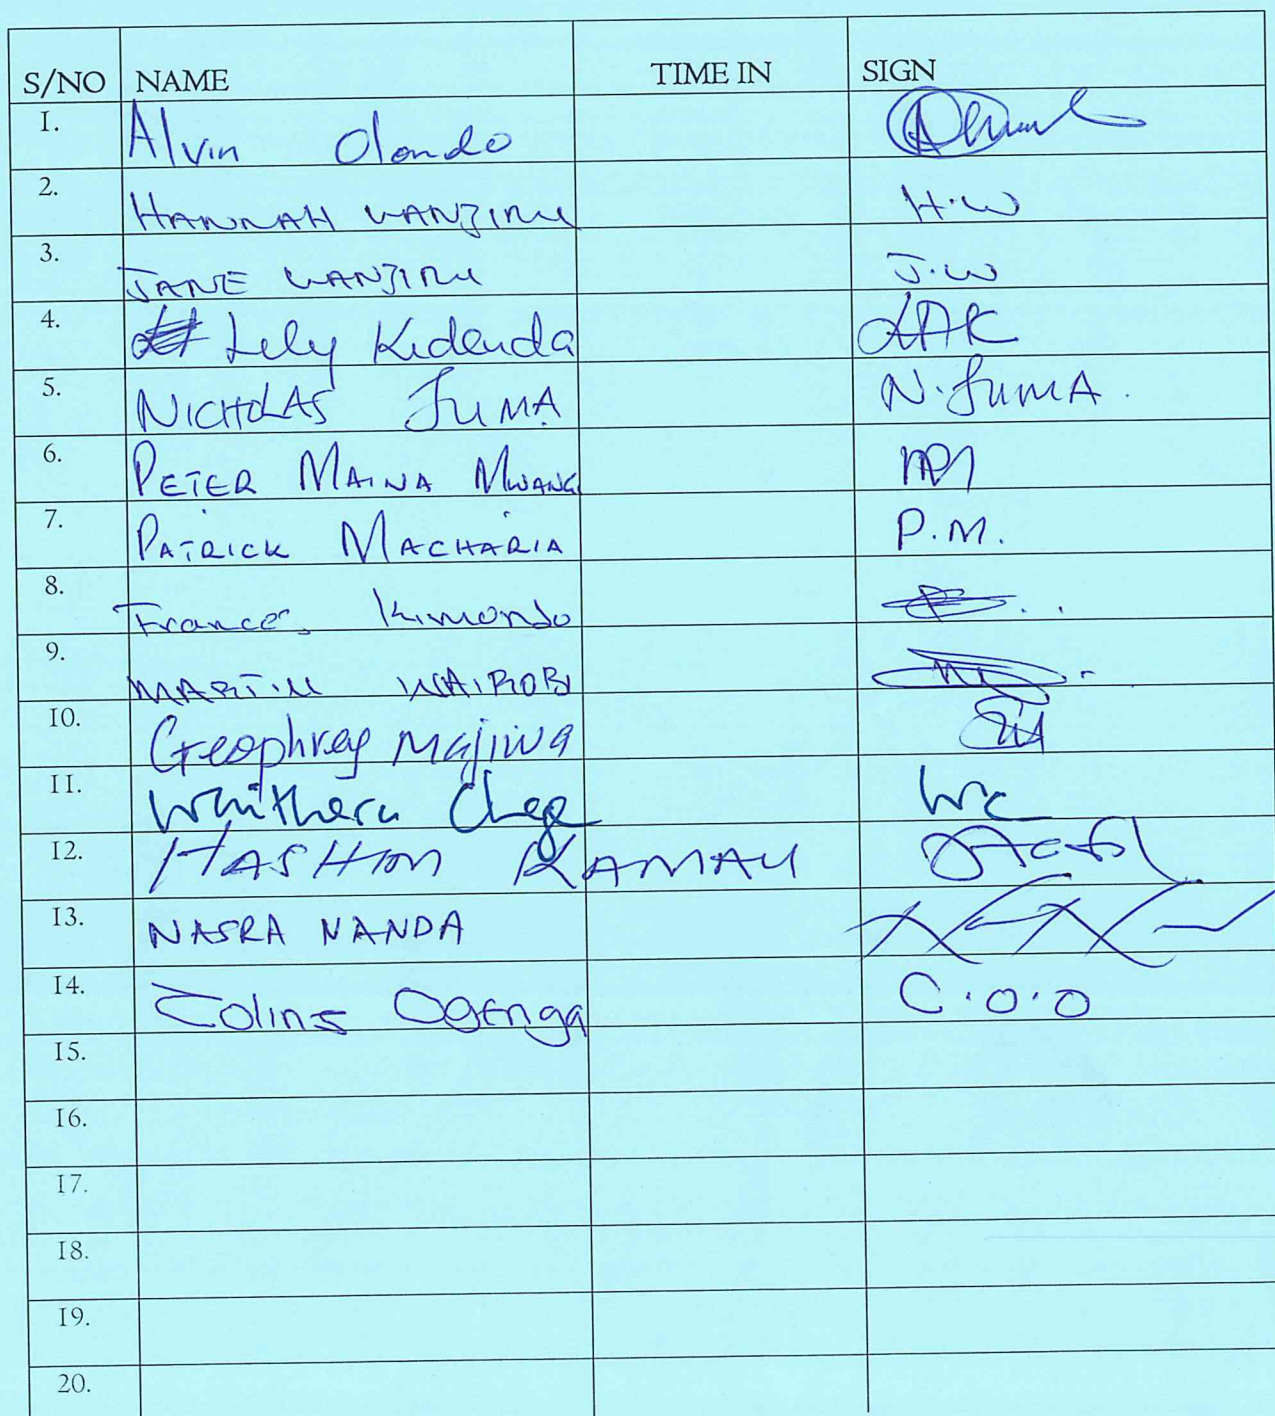 S/NO NAME TIME IN SIGN
1. Alvin Olondo
2. HANNAH WANJIRU H.W
3. JANE WANJIRU J.W
4. Lily Kidenda LAK
5. NICHOLAS JUMA N. JUMA.
6. PETER MAINA MWANG
7. PATRICK MACHARIA P.M.
8. Kimondo
9. MARTIN WAIROBI
10. Geophrey Majiwa
11. Waithera Chege WC
12. HASHIM KAMAU
13. NASRA NANDA
14. Colins Ogenga C.O.O
15.
16.
17.
18.
19.
20.